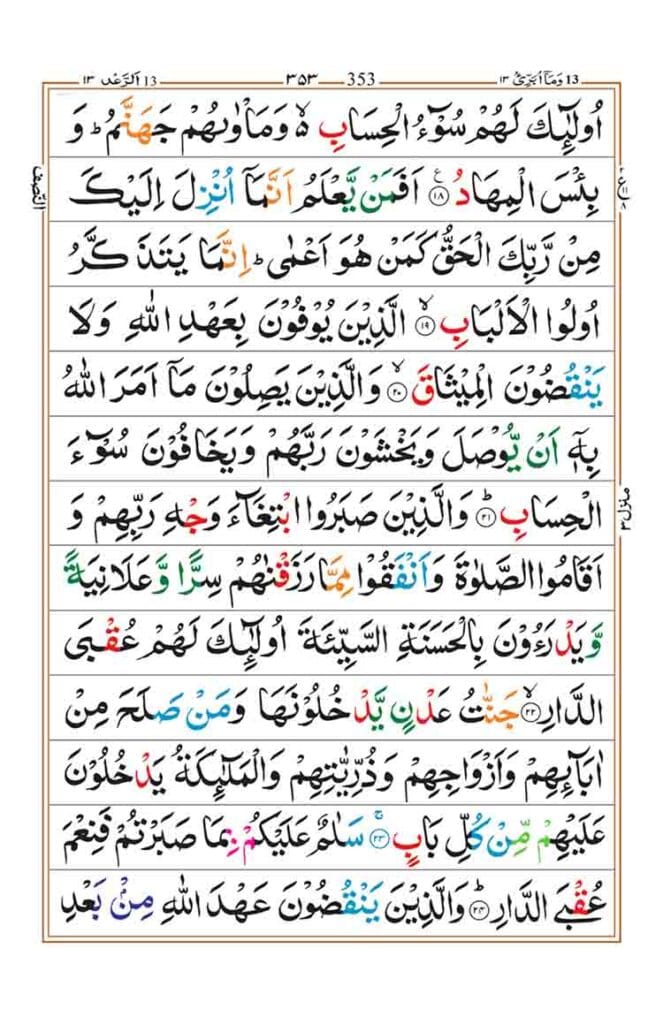 ١٣ اَلرَّعْد 13 ٣٥٣ 353 وَمَآ اُبَرِّئُ ١٣ 13
اُولٰٓئِكَ لَهُمْ سُوْٓءُ الْحِسَابِ ۙ وَمَاْوٰىهُمْ جَهَنَّمُ ؕ وَ
بِئْسَ الْمِهَادُ ۧ‏﴿۱۸﴾ اَفَمَنْ يَّعْلَمُ اَنَّمَاۤ اُنْزِلَ اِلَيْكَ
النّصف
مِنْ رَّبِّكَ الْحَقُّ كَمَنْ هُوَ اَعْمٰى ؕ اِنَّمَا يَتَذَكَّرُ
اُولُوا الْاَلْبَابِ ۙ‏﴿۱۹﴾ الَّذِيْنَ يُوْفُوْنَ بِعَهْدِ اللّٰهِ وَلَا
يَنْقُضُوْنَ الْمِيْثَاقَ ۙ‏﴿۲۰﴾ وَالَّذِيْنَ يَصِلُوْنَ مَاۤ اَمَرَ اللّٰهُ
بِهٖۤ اَنْ يُّوْصَلَ وَيَخْشَوْنَ رَبَّهُمْ وَيَخَافُوْنَ سُوْٓءَ
الْحِسَابِ ؕ‏﴿۲۱﴾ وَالَّذِيْنَ صَبَرُوا ابْتِغَآءَ وَجْهِ رَبِّهِمْ وَ
منزل ٣
اَقَامُوا الصَّلٰوةَ وَاَنْفَقُوْا مِمَّا رَزَقْنٰهُمْ سِرًّا وَّعَلَانِيَةً
وَّيَدْرَءُوْنَ بِالْحَسَنَةِ السَّيِّئَةَ اُولٰٓئِكَ لَهُمْ عُقْبَى
الدَّارِ ۙ‏﴿۲۲﴾ جَنّٰتُ عَدْنٍ يَّدْخُلُوْنَهَا وَمَنْ صَلَحَ مِنْ
اٰبَآئِهِمْ وَاَزْوَاجِهِمْ وَذُرِّيّٰتِهِمْ وَالْمَلٰٓئِكَةُ يَدْخُلُوْنَ
عَلَيْهِمْ مِّنْ كُلِّ بَابٍ ۚ‏﴿۲۳﴾ سَلٰمٌ عَلَيْكُمْ بِمَا صَبَرْتُمْ فَنِعْمَ
عُقْبَى الدَّارِ ؕ‏﴿۲۴﴾ وَالَّذِيْنَ يَنْقُضُوْنَ عَهْدَ اللّٰهِ مِنْۢ بَعْدِ